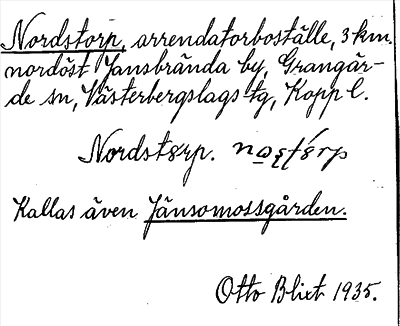 Nordstorp, arrendatorboställe, 3 km.
nordöst Jansbrända by, Grangär-
de sn, Västerbergslags tg, Kopp l.
Nordstørp.
Kallas även Jänsomossgården.
Otto Blixt 1935.